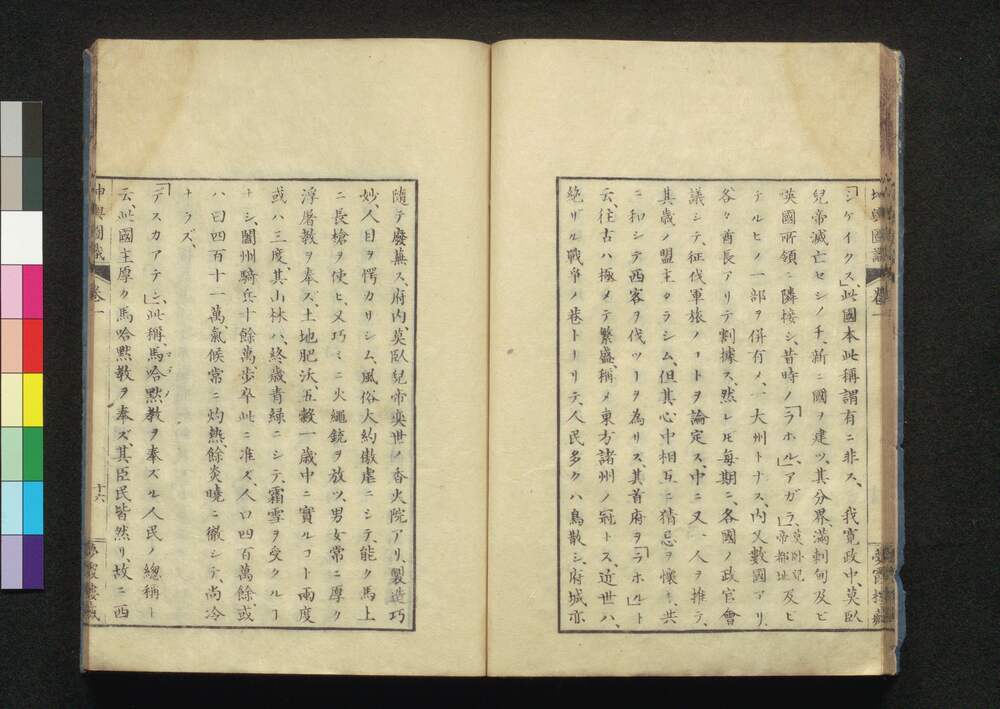 「シケイクス」、此國本此稱謂有ニ非ス、我寛政中、莫臥
兒帝滅亡セシノチ、新ニ國ヲ建ツ、其分界、滿剌甸及ヒ
英國所領ニ隣接シ、昔時ノ「ラホル」、アガラ、莫臥兒帝都址及ヒ
テルヒノ一部ヲ併有ノ、一大州トナス、内又數國アリ、
各々酋長アリテ割據ス、然レ𪜈毎期ニ、各國ノ政官會
議シテ、征伐軍旅ノヿヲ論定ス、中ニ又一人ヲ推テ、
其歳ノ盟主タラシム、但其心中相互ニ猜忌ヲ懷キ、共
ニ和シテ西客ヲ伐ツヿヲ為リス、其首府ヲ「ラホル」ト
云、往古ハ極メテ繁盛、稱メ東方諸州ノ冠トス、近世ハ、
絶ザル戰爭ノ巷トナリテ、人民多クハ鳥散シ、府城亦
隨テ廢蕪ス、府内、莫臥兒帝奕世ノ香火院アリ、製造巧
妙、人目ヲ愕カリシム、風俗大約傲虐ニシテ、能ク馬上
ニ長槍ヲ使ヒ、又巧ミニ火繩銃ヲ放ツ、男女常ニ厚ク
浮屠教ヲ奉ス、土地肥沃、五穀一歳中ニ實ルコト兩度
或ハ三度、其山林ハ、終歳青緑ニシテ、霜雪ヲ受クルヿ
ナシ、闔州騎兵十餘萬、歩卒此ニ准ス、人口四百萬餘、或
ハ曰四百十一萬、氣候常ニ灼熱、餘炎曉ニ徹シテ、尚冷
ナラズ、
「デスカアテン」、此稱、馬哈黙教ヲ奉ズル人民ノ總稱ト
云、此國主厚ク馬哈黙教ヲ奉ズ、其臣民皆然リ、故ニ西
坤輿圖識
卷一
十六